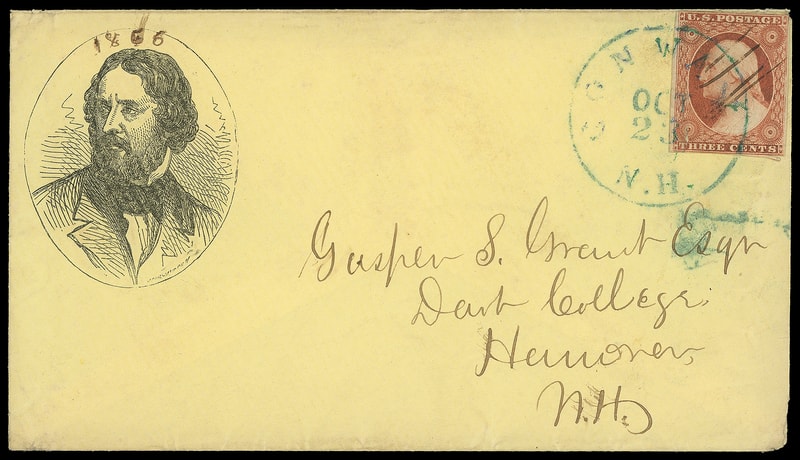 1856
U.S. POSTAGE
THREE CENTS
CONWAY
OCT
23
N.H.
S. Grant Esqr
Dart College
Hanover,
N.H.